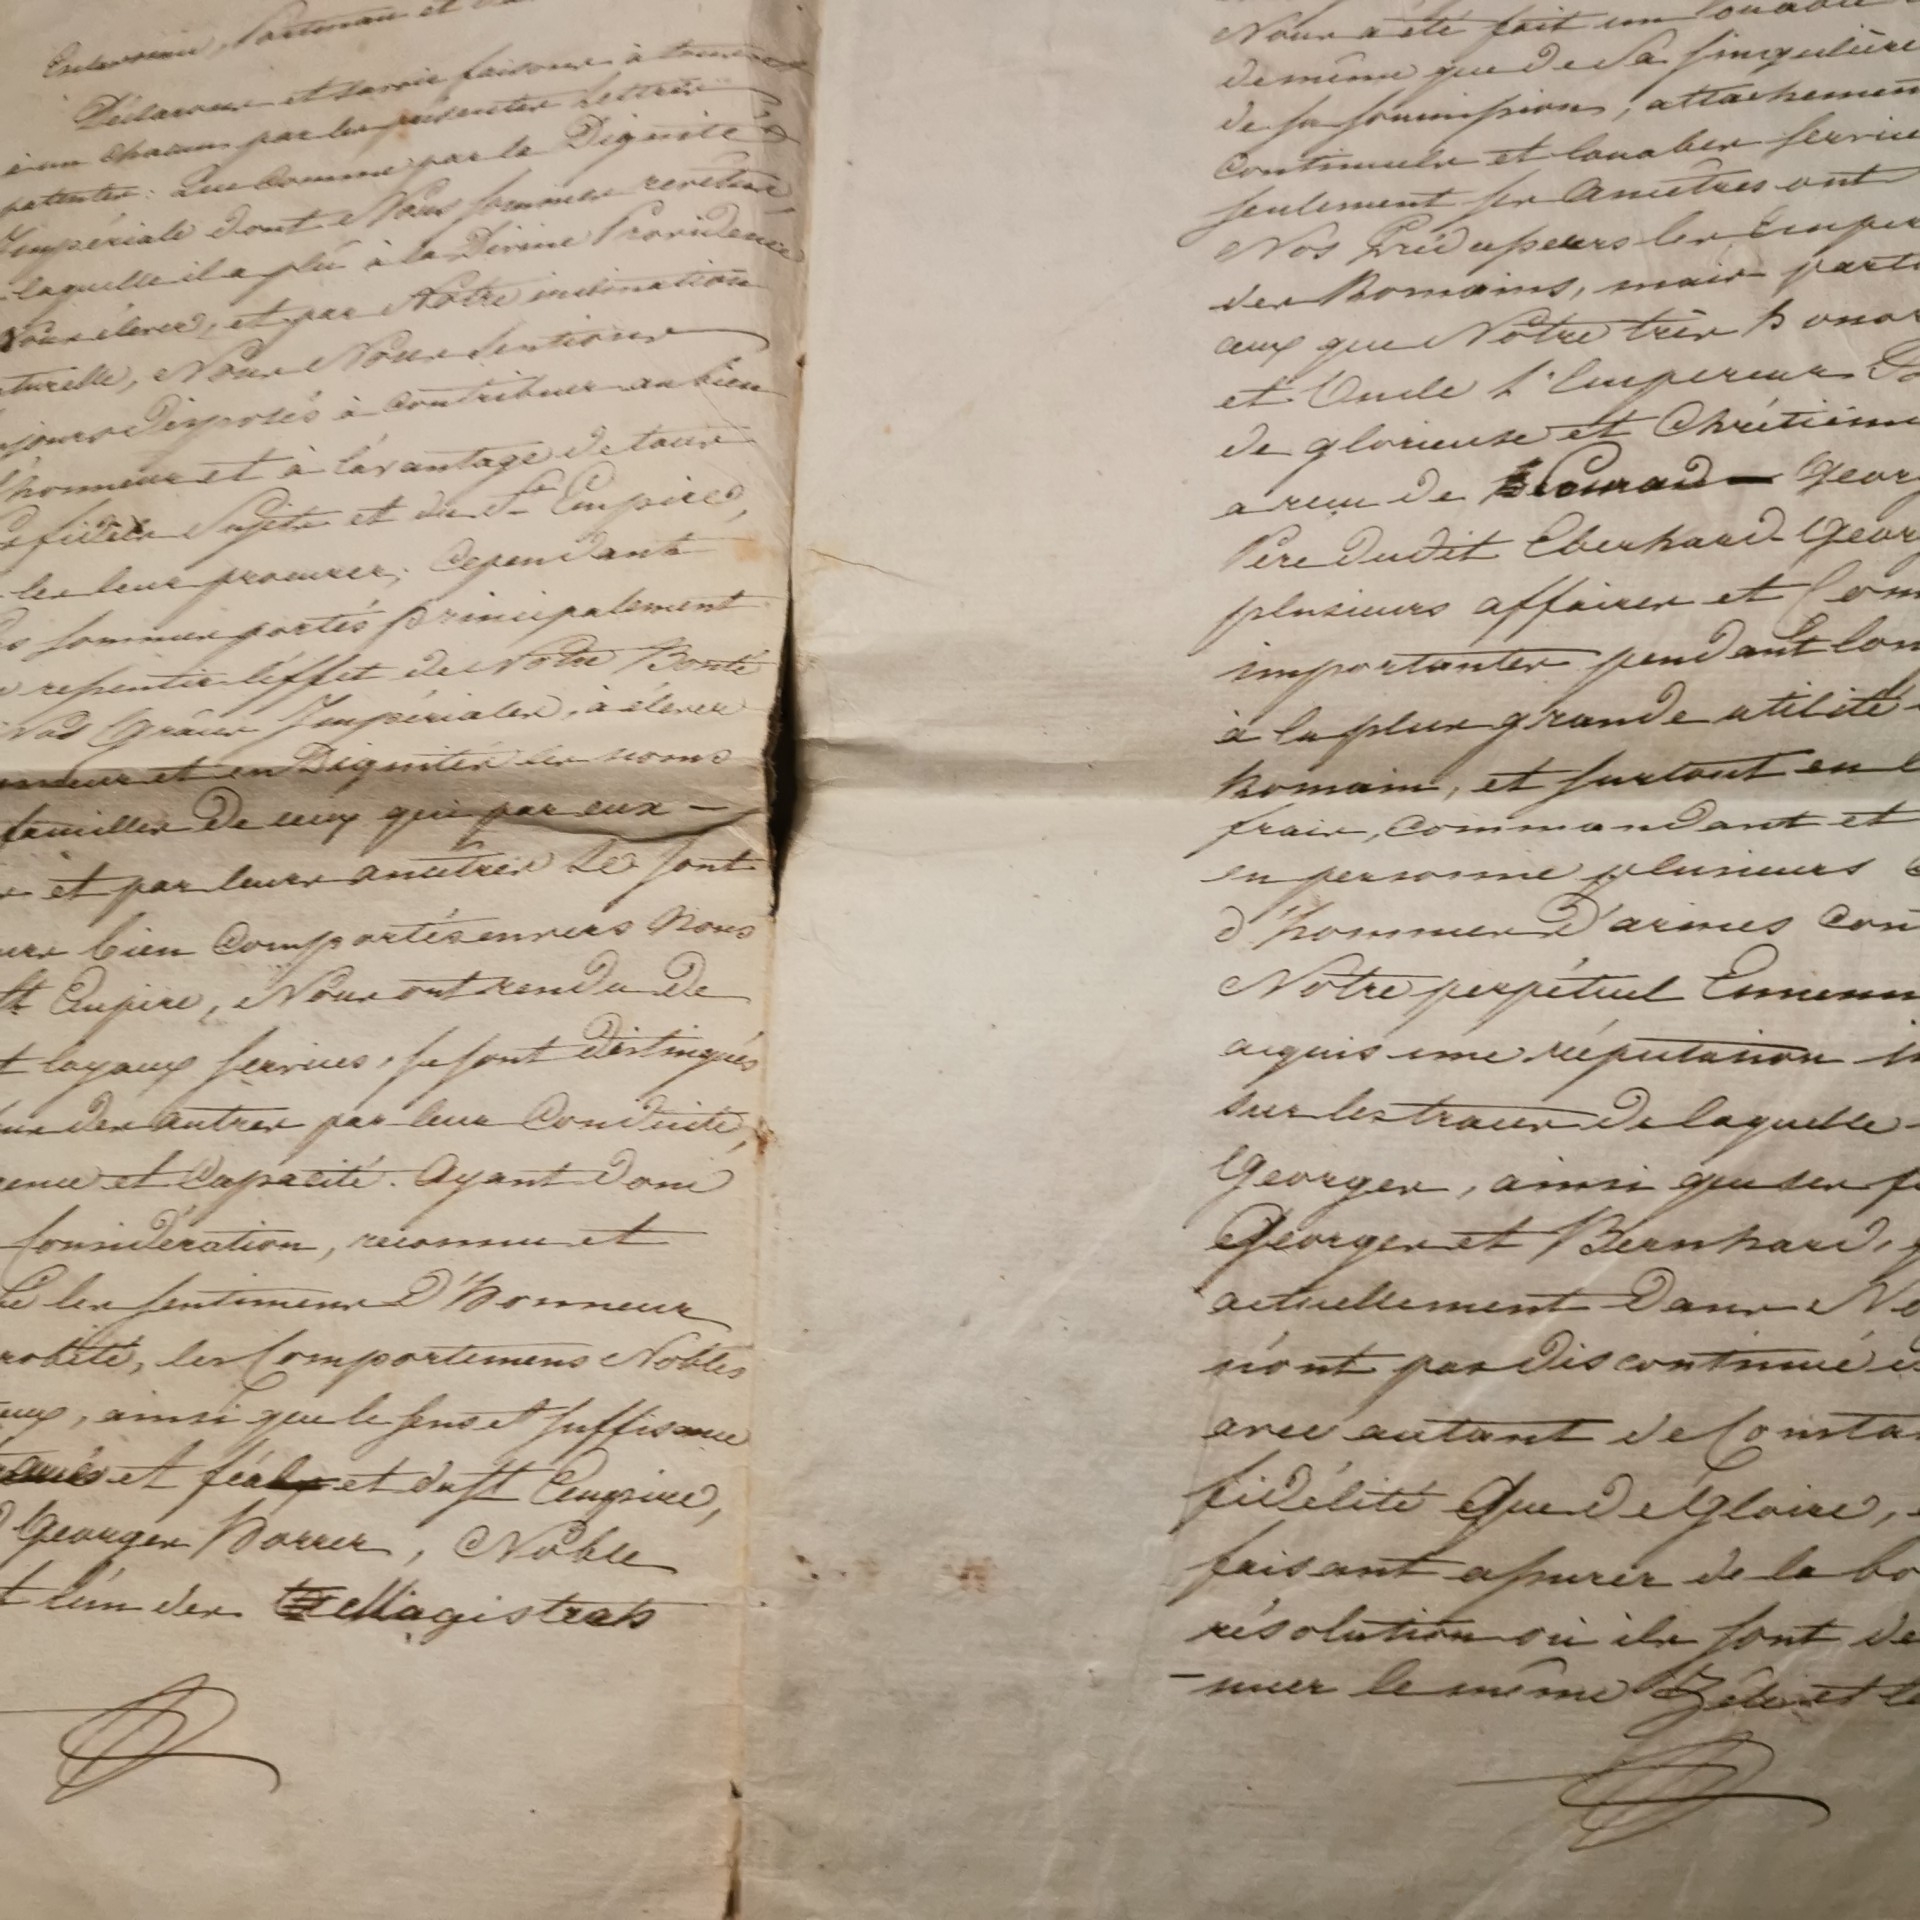 Déclarons et savoir faisons à tous et
à un chacun par les présentes Lettres
patentes: Que comme par la Dignité
Impériale dont Nous sommes revêtus
laquelle il a plû à la Divine Providence
Nous élever, et par Notre inclination
turelle, Nous Nous sentions
jours disposés à contribuer au bien
honneur et à l'avantage de tous
fidèles Sujets et du St Empire,
les leur procurer; Cependant
sommes portés principalement
ressentir l'effet de Notre Bonté
Nos Grâces Impériales, à élever
nneur et en Dignités les noms
familles de ceux qui par eux-
et par leurs ancêtres se sont
urs bien Comportés envers Nous
St Empire, Nous ont rendu de
t loyaux services, se sont distingués
sur des autres par leur Conduite,
gence et Capacité. Ayant donc
Considération, reconnu et
les sentimens D'honneur
robité, les Comportemens Nobles
eux, ainsi que le sens et suffisance
et féal et du St Empire,
Georges Horrer, Noble
t l'un des Magistrats
Nous a été fait un louable
de même que de Sa singulière
de sa soumission, attachemen
continuels et louables service
seulement ses Ancêtres ont
Nos Prédécesseurs les Emper
des Romains, mais parti
ceux que Notre très honor
et Oncle l'Empereur
de glorieuse et Chrétienne
a reçu de Conrad Georg
Père dudit Eberhard Georg
plusieurs affaires et Com
importantes pendant lon
à la plus grande utilité
Romain, et surtout en l
frais, commandant et
en personne plusieurs
d'hommes D'armes con
Notre perpétuel Ennemi
acquis une réputation in
sur les traces de laquelle
Georges, ainsi que ses f
Georges et Bernhard,
actuellement Dans No
n'ont pas discontinué d
avec autant de Consta
fidélité Que de Gloire,
faisant assurer de la bo
résolution où ils sont de
-nuer le même Zèle et le